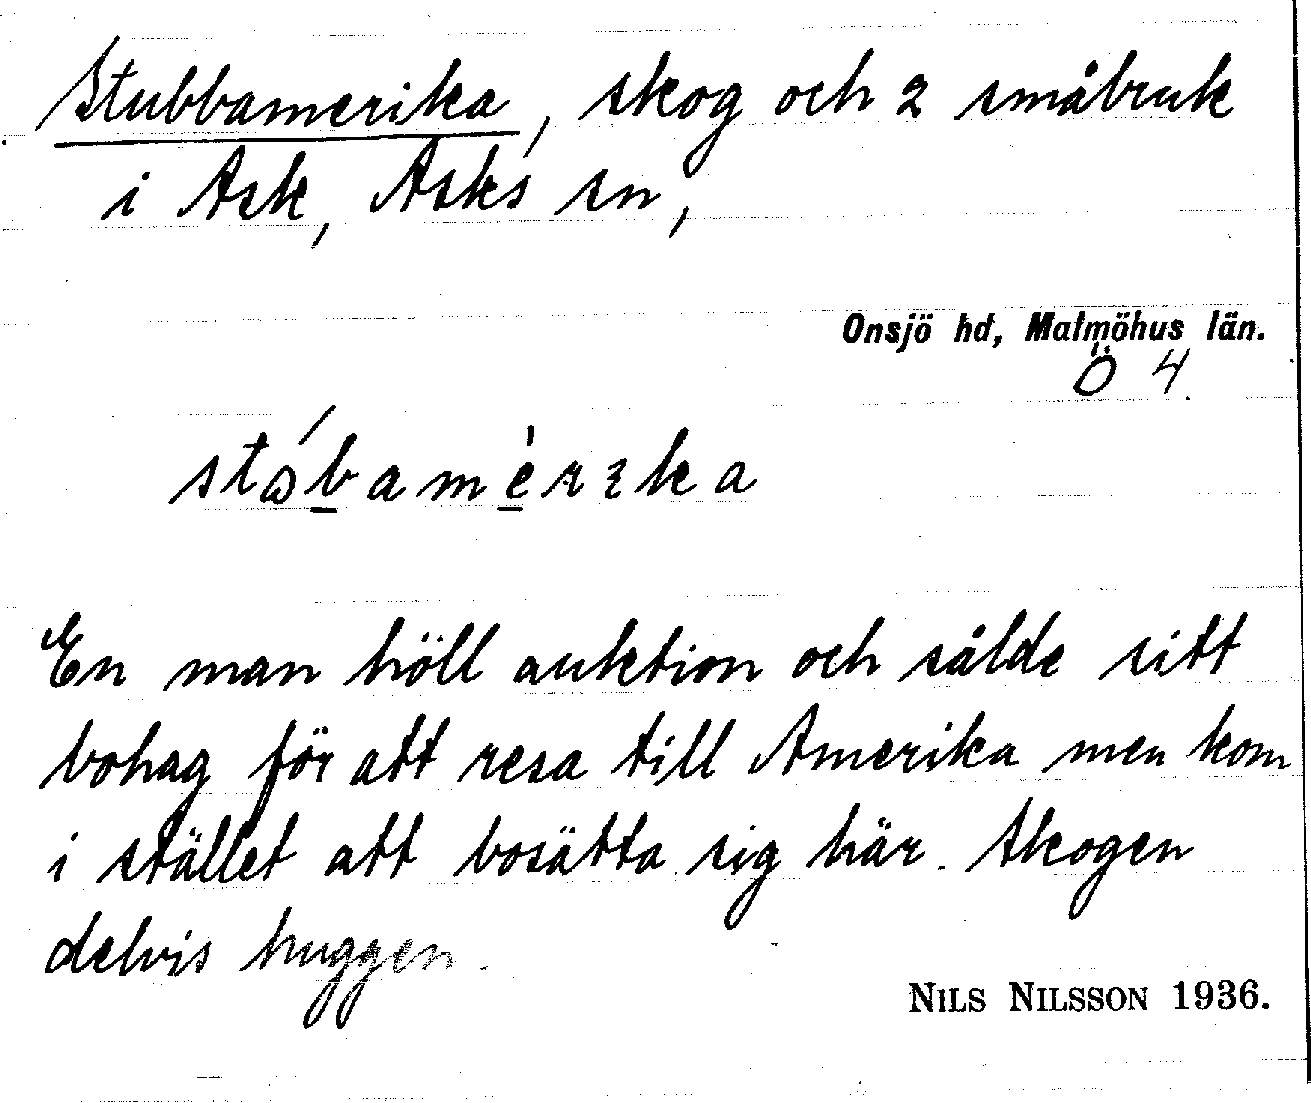 Stubbamerika, skog och 2 småbruk
i Ask, Asks sn,
Onsjö hd, Malmöhus län.
Ö 4
En man höll auktion och sålde sitt
bohag för att resa till Amerika men kom
i stället att bosätta sig här. Skogen
delvis huggen.
NILS NILSSON 1936.